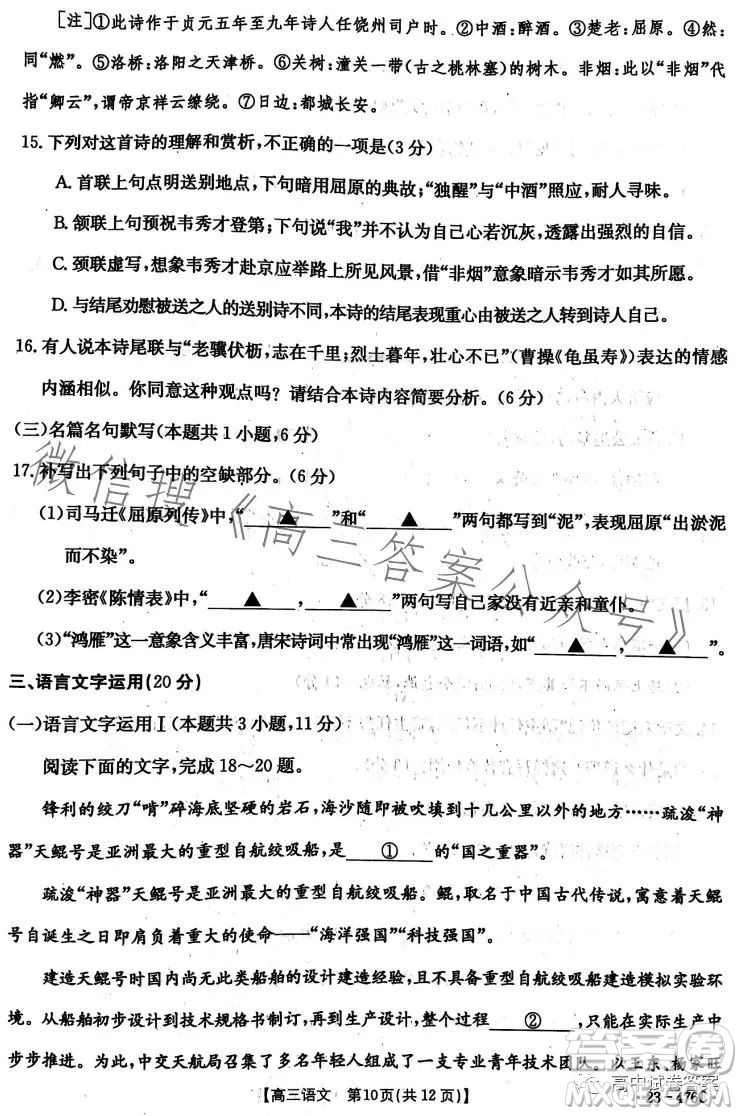 [注]①此诗作于贞元五年至九年诗人任饶州司户时。②中酒:醉酒。③楚老:屈原。④然:
同“燃”。⑤洛桥:洛阳之天津桥。⑥关树:潼关一带(古之桃林塞)的树木。非烟:此以“非烟”代
指“卿云”,谓帝京祥云缭绕。⑦日边:都城长安。
15.下列对这首诗的理解和赏析,不正确的一项是(3分)
A.首联上句点明送别地点,下句暗用屈原的典故;“独醒”与“中酒”照应,耐人寻味。
B.颔联上句预祝韦秀才登第;下句说“我”并不为自己心若沉灰,透露出强烈的自信。
C.颈联虚写,想象韦秀才赴京应举路上所见风景,借“非烟”意象暗示韦秀才如其所愿。
D.与结尾劝慰被送之人的送别诗不同,本诗的结尾表现重心由被送之人转到诗人自己。
16.有人说本诗尾联与“老骥伏枥,志在千里;烈士暮年,壮心不已”(曹操《龟虽寿》)表达的情感
内涵相似。你同意这种观点吗?请结合本诗内容简要分析。(6分)
(三)名篇名句默写(本题共1小题,6分)
17.补写出下列句子中的空缺部分。(6分)
(1)司马迁《屈原列传》中,“▲”和“▲”两句都写到“泥”,表现屈原“出淤泥
而不染”。
(2)李密《陈情表》中,“▲,▲”两句写自己家没有近亲和童仆。
(3)“鸿雁”这一意象含义丰富,唐宋诗词中常出现“鸿雁”这一词语,如“▲,▲”。
三、语言文字运用(20分)
(一)语言文字运用Ⅰ(本题共3小题,11分)
阅读下面的文字,完成18~20题。
锋利的绞刀“啃”碎海底坚硬的岩石,海沙随即被吹填到十几公里以外的地方……疏浚“神
器”天鲲号是亚洲最大的重型自航绞吸船,是①的“国之重器”。
疏浚“神器”天鲲号是亚洲最大的重型自航绞吸船。鲲,取名于中国古代传说,寓意着天鲲
号自诞生之日即肩负着重大的使命——“海洋强国”“科技强国”。
建造天鲲号时国内尚无此类船舶的设计建造经验,且不具备重型自航绞吸船建造模拟实验环
境。从船舶初步设计到技术规格书制订,再到生产设计,整个过程②,只能在实际生产中
步步推进。为此,中交天航局召集了多名年轻人组成了一支专业青年技术团队。以王东、杨家旺
【高三语文 第10页(共12页)】
23-476C
微信搜《高三答案公众号》
答案圈
高中试卷答案